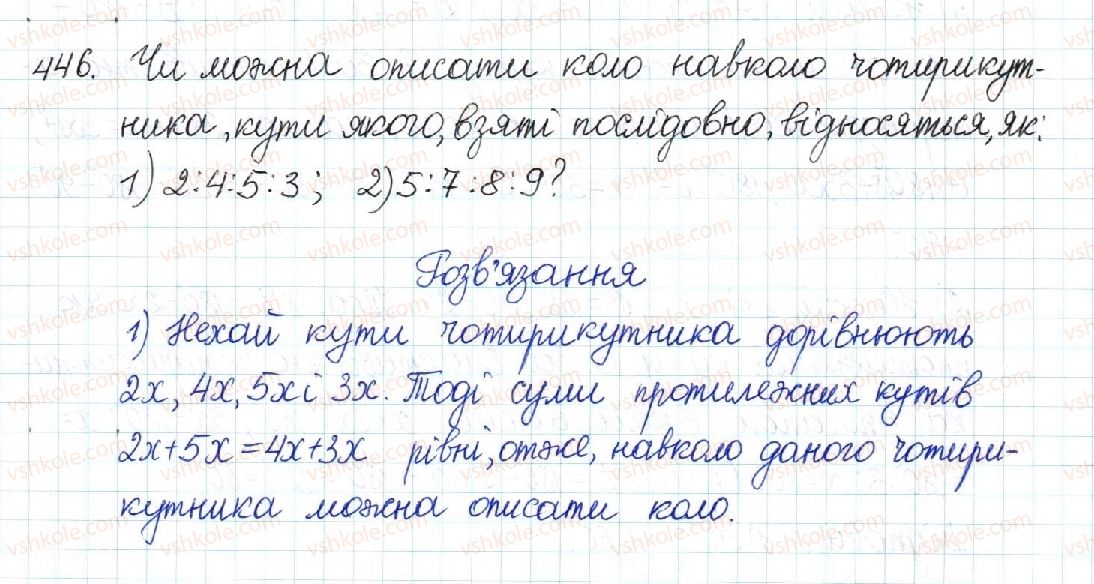 446. Чи можна описати коло навколо чотирикут-
ника, кути якого, взяті послідовно, відносяться, як:
1) 2:4:5:3; 2) 5:7:8:9?
Розв'язання
1) Нехай кути чотирикутника дорівнюють
2x, 4x, 5x і 3x. Тоді суми протилежних кутів
2x+5x=4x+3x рівні, отже, навколо даного чотири-
кутника можна описати коло.